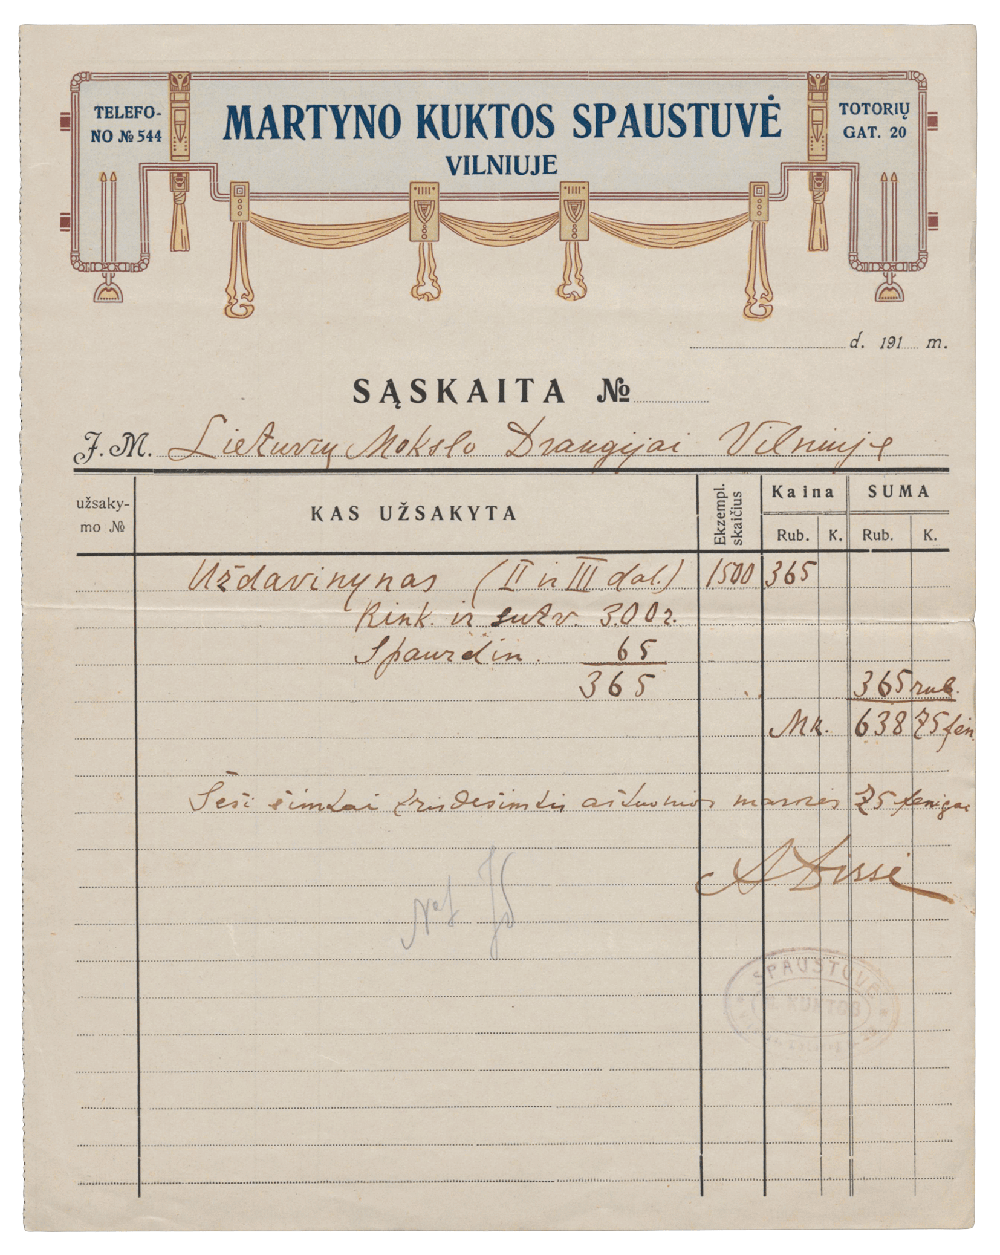 TELEFO-
NO № 544
MARTYNO KUKTOS SPAUSTUVĖ
VILNIUJE
TOTORIŲ
GAT. 20
d. 191 m.
SĄSKAITA №
J. M. Lietuvių Mokslo Draugijai Vilniuje
užsaky-
mo №
KAS UŽSAKYTA
Ekzempl.
skaičius
Kaina
SUMA
Rub. K. Rub. K.
Uždavinynas (II ir III dal.) 1500 365
Rink. ir sutv. 300 r.
Spausdin. 65
365 365 rub.
Mk. 638 75 fen.
Šeši šimtai trisdešimtis aštuonios markės 75 fenigai
SPAUSTUVĖ
M. KUKTOS